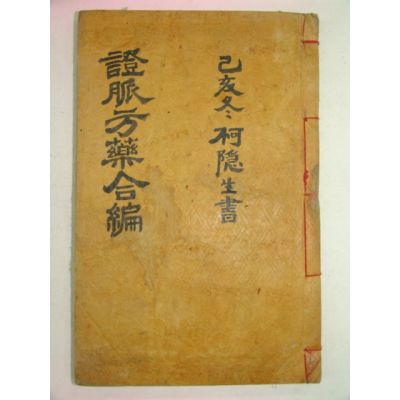 己亥冬 柯隱生書
證脈方藥合編